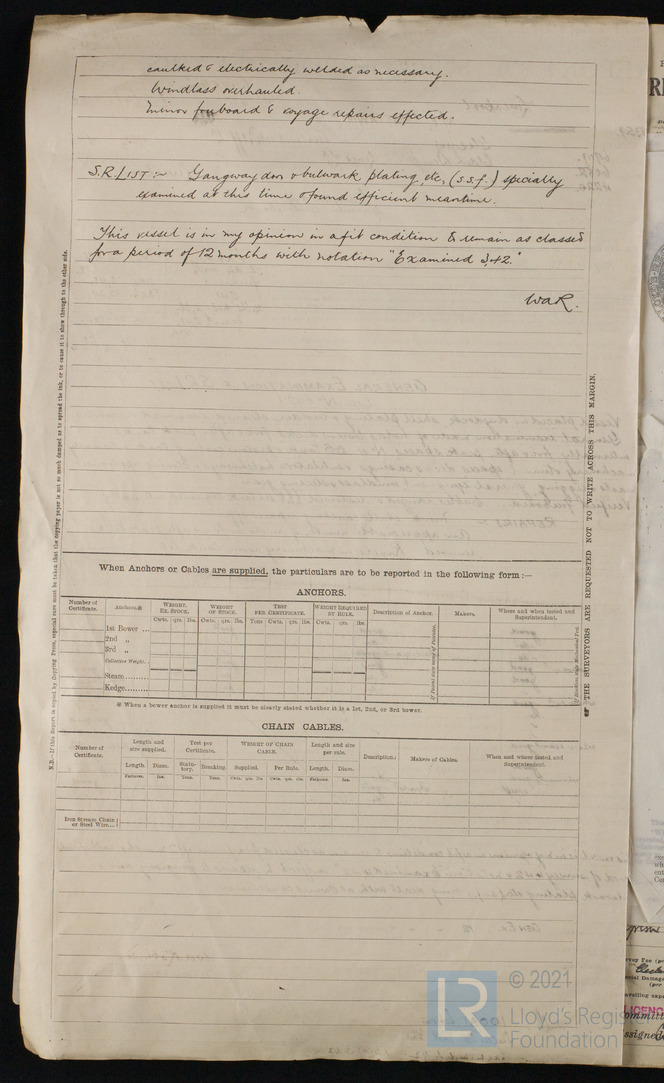 caulked & electrically welded as necessary.
Windlass overhauled.
Minor freeboard & voyage repairs effected.
S.R. LIST :- Gangway door & bulwark plating, etc, (s.s.f.) specially
examined at this time & found efficient meantime.
This vessel is in my opinion in a fit condition to remain as classed
for a period of 12 months with notation "Examined 3,42."
WaR.
N.B.—If this Report is copied by Copying Press, especial care must be taken that the copying paper is not so much damped as to spread the ink, or to cause it to show through to the other side.
☞ THE SURVEYORS ARE REQUESTED NOT TO WRITE ACROSS THIS MARGIN.
When Anchors or Cables are supplied, the particulars are to be reported in the following form :—
ANCHORS.
Number of Certificate. Anchors.※ WEIGHT. EX. STOCK. WEIGHT OF STOCK. TEST PER CERTIFICATE. WEIGHT REQUIRED BY RULE. Description of Anchor. Makers. Where and when tested and Superintendent.
Cwts. qrs. lbs. Cwts. qrs. lbs. Tons Cwts. qrs. lbs. Cwts. qrs. lbs.
1st Bower ...
2nd „
3rd „
Collective Weight.
Stream
Kedge
※ When a bower anchor is supplied it must be clearly stated whether it is a 1st, 2nd, or 3rd bower.
CHAIN CABLES.
Number of Certificate. Length and size supplied. Test per Certificate. WEIGHT OF CHAIN CABLE. Length and size per rule. Description. Makers of Cables. When and where tested and Superintendent.
Length. Diam. Statutory. Breaking. Supplied. Per Rule. Length. Diam.
Iron Stream Chain or Steel Wire
© 2021
LR
Lloyd's Register
Foundation